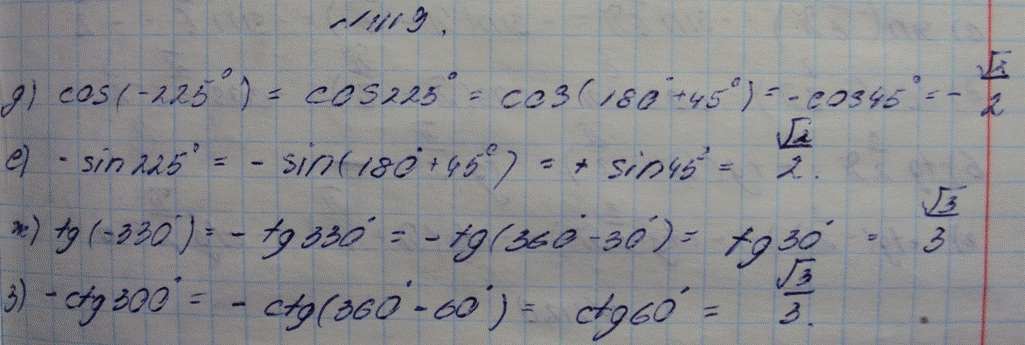 №1119.
д) cos(-225°) = cos225° = cos(180°+45°) = -cos45° = -√2/2
е) -sin225° = -sin(180°+45°) = + sin45° = √2/2.
ж) tg(-330°) = -tg330° = -tg(360°-30°) = tg30° = √3/3
з) -ctg300° = -ctg(360°-60°) = ctg60° = √3/3.